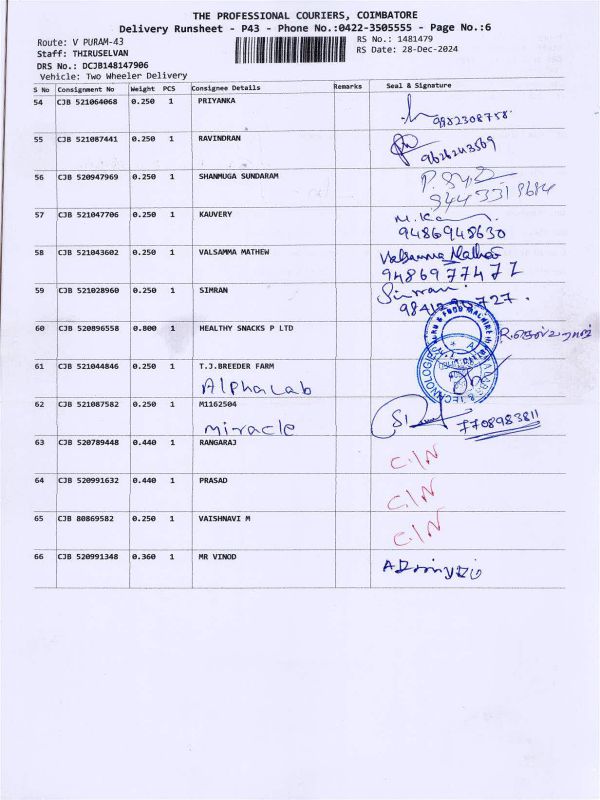 THE PROFESSIONAL COURIERS, COIMBATORE
Delivery Runsheet - P43 - Phone No.:0422-3505555 - Page No.:6
Route: V PURAM-43 RS No.: 1481479
Staff: THIRUSELVAN RS Date: 28-Dec-2024
DRS No.: DCJB148147906
Vehicle: Two Wheeler Delivery
S No Consignment No Weight PCS Consignee Details Remarks Seal & Signature
54 CJB 521064068 0.250 1 PRIYANKA
9982308758
55 CJB 521087441 0.250 1 RAVINDRAN
9626243569
56 CJB 520947969 0.250 1 SHANMUGA SUNDARAM
57 CJB 521047706 0.250 1 KAUVERY
9486948630
58 CJB 521043602 0.250 1 VALSAMMA MATHEW Valsamma Mathew
9486977477
59 CJB 521028960 0.250 1 SIMRAN Simran
60 CJB 520896558 0.800 1 HEALTHY SNACKS P LTD
61 CJB 521044846 0.250 1 T.J.BREEDER FARM
AlphaLab
62 CJB 521087582 0.250 1 M1162504
Miracle 7708983811
63 CJB 520789448 0.440 1 RANGARAJ C/N
64 CJB 520991632 0.440 1 PRASAD C/N
65 CJB 80869582 0.250 1 VAISHNAVI M C/N
66 CJB 520991348 0.360 1 MR VINOD